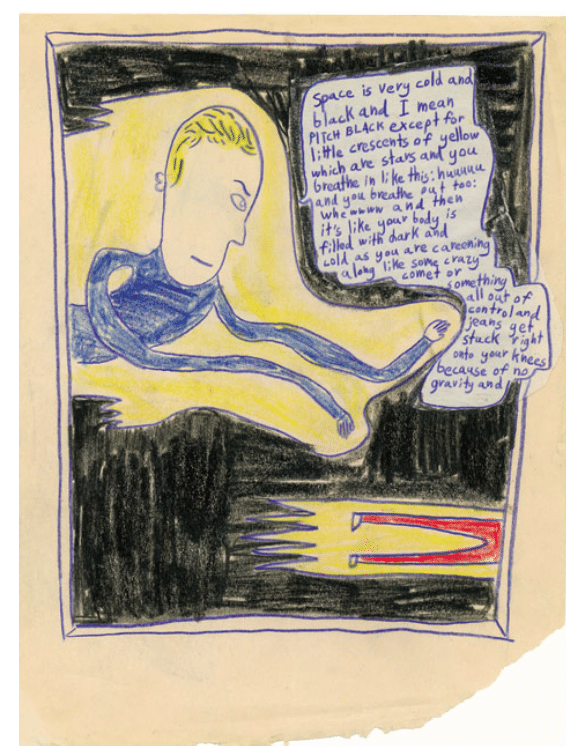 Space is very cold and
black and I mean
PITCH BLACK except for
little crescents of yellow
which are stars and you
breathe in like this: huuuuu
and you breathe out too:
whewwww and then
it's like your body is
filled with dark and
cold as you are careening
along like some crazy
comet or
something
all out of
control and
jeans get
stuck right
onto your knees
because of no
gravity and